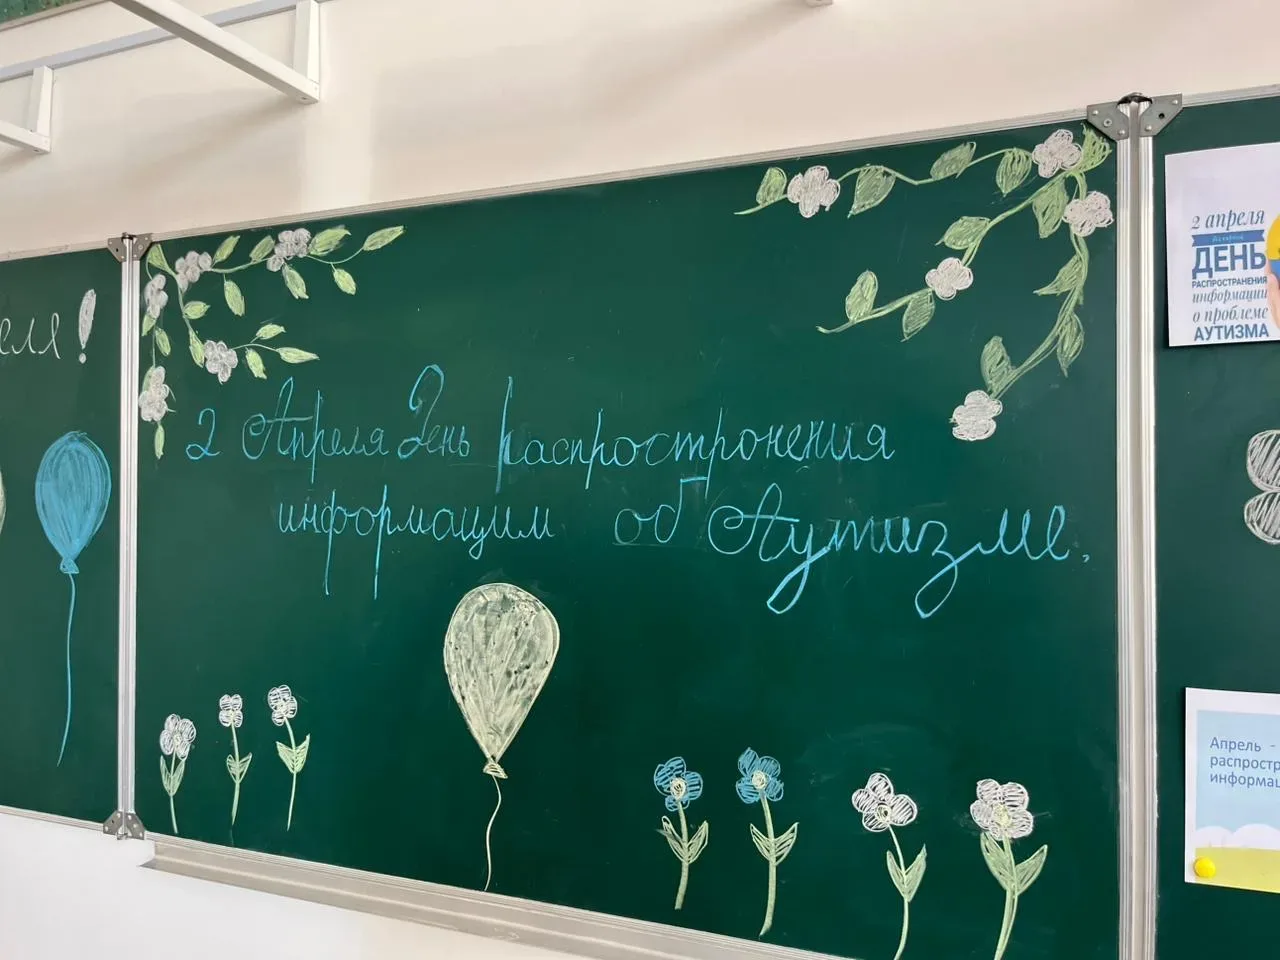 еля!
2 Апреля День распростронения
информации об Аутизме.
2 апреля
ДЕНЬ
РАСПРОСТРАНЕНИЯ
информации
о проблеме
АУТИЗМА
Апрель -
распростр
информац